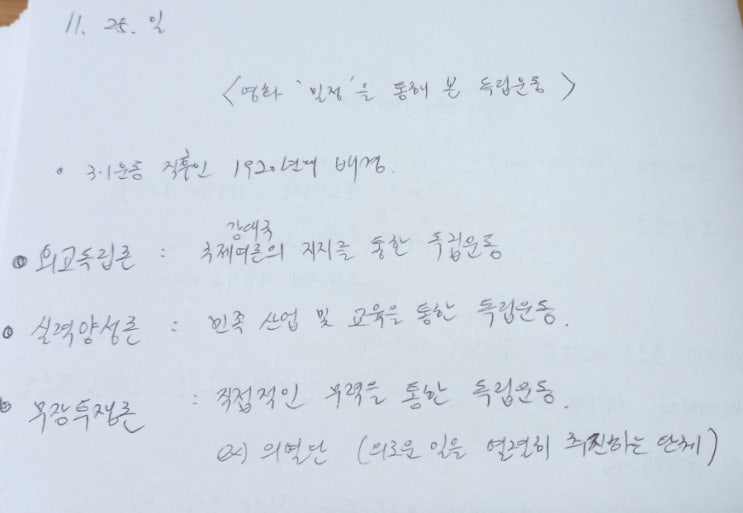 11. 25. 일
<영화 '밀정'을 통해 본 독립운동>
• 3·1운동 직후인 1920년대 배경.
강대국
• 외교독립론 : 국제여론의 지지를 통한 독립운동
• 실력양성론 : 민족 산업 및 교육을 통한 독립운동.
• 무장투쟁론 : 직접적인 무력을 통한 독립운동.
ex) 의열단 (의로운 일을 열렬히 추진하는 단체)